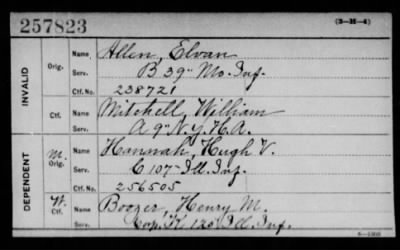 257823 (3-H-4)
INVALID
Orig. Name Allen, Elvan
Serv. B 39" Mo. Inf.
Ctf. No. 238721
Ctf. Name Mitchell, William
Serv. A 9" N.Y. H.A.
DEPENDENT
M. Orig. Name Hannah, Hugh V.
Serv. C 107" Ill. Inf.
Ctf. No. 256505
W. Ctf. Name Boozer, Henry M.
Serv. Cop. K. 120 Ill. Inf.